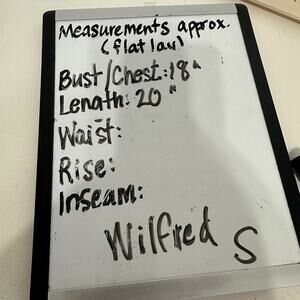 Measurements approx.
(flat lay)
Bust/Chest: 18"
Length: 20"
Waist:
Rise:
Inseam:
Wilfred S